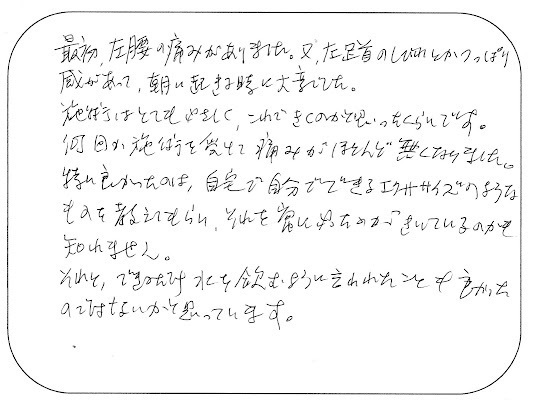 最初、左腰の痛みがありました。又、左足首のしびれとかつっぱり
感があって、朝に起きる時に大変でした。
施術はとてもやさしく、これできくのかと思ったくらいです。
何回か施術を受けて痛みがほとんど無くなりました。
特に良かったのは、自宅で自分でできるエクササイズのような
ものを教えてもらい、それを常にやったのがきいているのかも
知れません。
それと、できるだけ水を飲むように言われたことも良かった
のではないかと思っています。